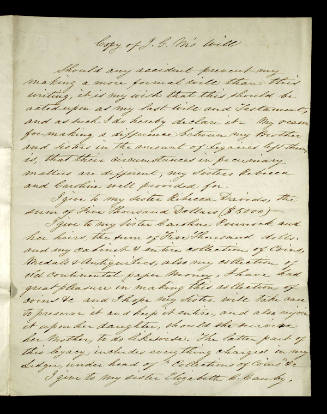 Copy of J. G. M's Will
Should any accident prevent my
making a more formal will than this
writing, it is my wish that this should be
acted upon as my last will and Testament,
and as such I do hereby declare it — My reason
for making a difference between my Brother
and sisters in the amount of legacies left them
is, that their circumstances in pecuniary
matters are different, my Sisters Rebecca
and Caroline well provided for.
I give to my sister Rebecca Davids, the
sum of Five Thousand Dollars ($5000) —
I give to my Sister Caroline and
her heirs the sum of Five Thousand dolls.
and my cabinet & entire collections of Coins,
Medals & Antiquities, also my collection of
old continental paper money, I have had
great pleasure in making this collection of
coins &c and I hope my Sister will take care
to preserve it and keep it entire, and also enjoin
it upon her daughter, should she survive
her Mother, to do likewise. The latter part of
this legacy, includes everything charged in my
Ledger, under head of "Collections of Coins" &c
I give to my sister Elizabeth